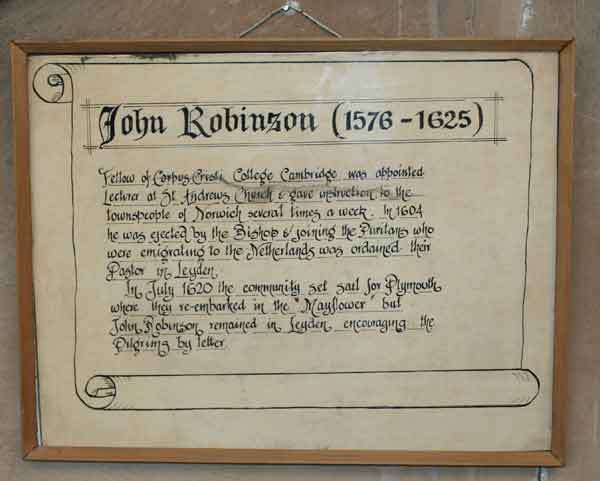 John Robinson (1576-1625)
Fellow of Corpus Cristi College Cambridge was appointed
Lecturer at St. Andrews Church & gave instruction to the
townspeople of Norwich several times a week. In 1604
he was ejected by the Bishop & joining the Puritans who
were emigrating to the Netherlands was ordained their
Pastor in Leyden.
In July 1620 the community set sail for Plymouth
where they re-embarked in the "Mayflower" but
John Robinson remained in Leyden encouraging the
Pilgrims by letter.